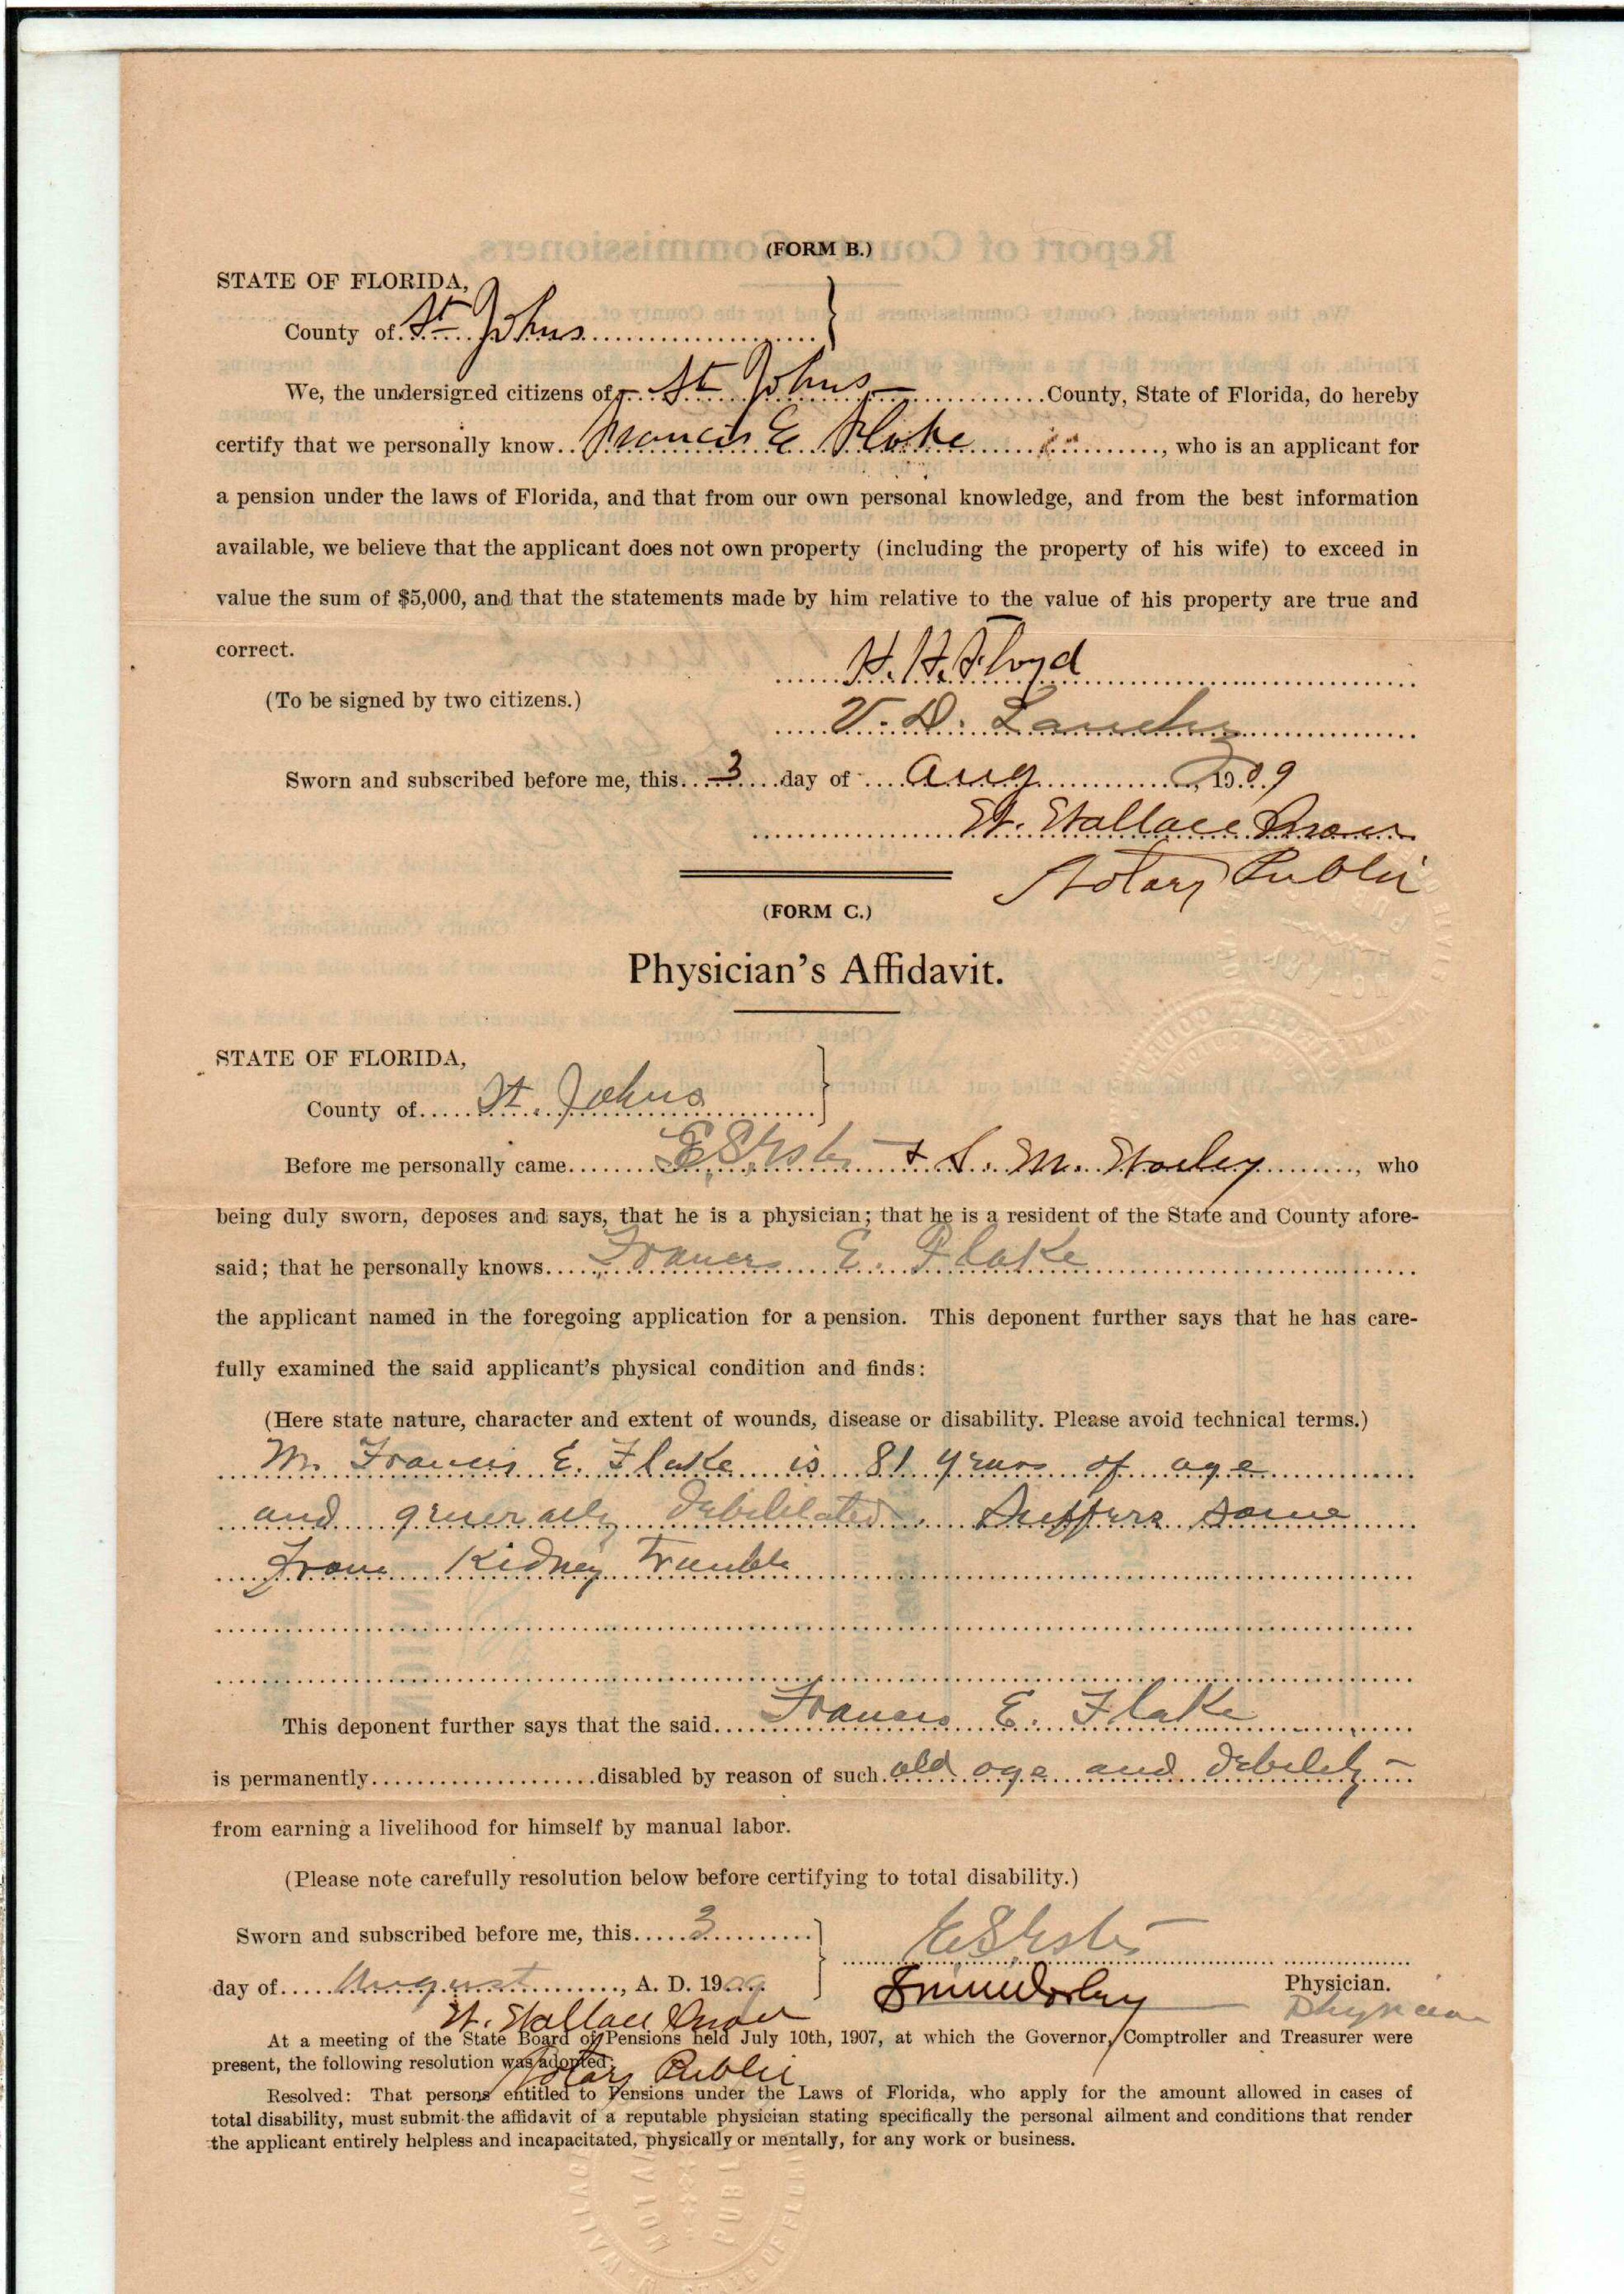 (FORM B.)
STATE OF FLORIDA,
County of St Johns
We, the undersigned citizens of St Johns County, State of Florida, do hereby
certify that we personally know Francis E Flake, who is an applicant for
a pension under the laws of Florida, and that from our own personal knowledge, and from the best information
available, we believe that the applicant does not own property (including the property of his wife) to exceed in
value the sum of $5,000, and that the statements made by him relative to the value of his property are true and
correct.
H. H. Floyd
(To be signed by two citizens.)
V. D.
Sworn and subscribed before me, this 3 day of Aug, 1909
W. Wallace Snow
Notary Public
(FORM C.)
Physician's Affidavit.
STATE OF FLORIDA,
County of St. Johns
Before me personally came & S. M. Worley, who
being duly sworn, deposes and says, that he is a physician; that he is a resident of the State and County afore-
said; that he personally knows Francis E. Flake
the applicant named in the foregoing application for a pension. This deponent further says that he has care-
fully examined the said applicant's physical condition and finds:
(Here state nature, character and extent of wounds, disease or disability. Please avoid technical terms.)
Mr Francis E. Flake is 81 years of age
and generally debilitated. Suffers some
from Kidney trouble
This deponent further says that the said Francis E. Flake
is permanently disabled by reason of such old age and debility
from earning a livelihood for himself by manual labor.
(Please note carefully resolution below before certifying to total disability.)
Sworn and subscribed before me, this 3
day of August, A. D. 1909
Physician.
S M Worley Physician
W. Wallace Snow
At a meeting of the State Board of Pensions held July 10th, 1907, at which the Governor, Comptroller and Treasurer were
present, the following resolution was adopted:
Notary Public
Resolved: That persons entitled to Pensions under the Laws of Florida, who apply for the amount allowed in cases of
total disability, must submit the affidavit of a reputable physician stating specifically the personal ailment and conditions that render
the applicant entirely helpless and incapacitated, physically or mentally, for any work or business.